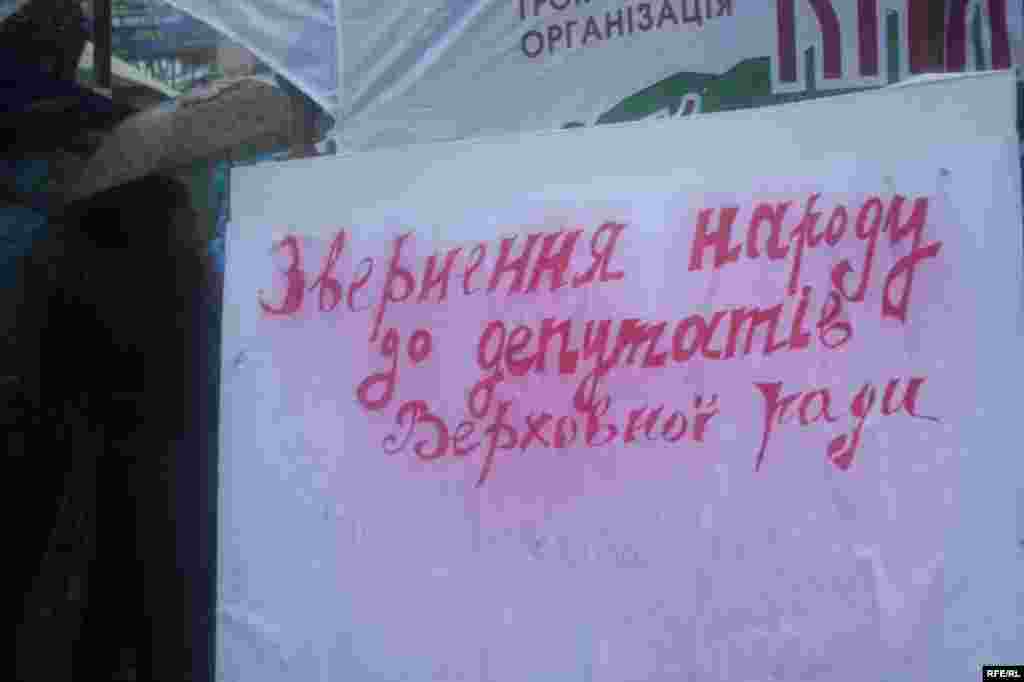 ОРГАНІЗАЦІЯ
Звернення народу
до депутатів
Верховної ради
RFE/RL